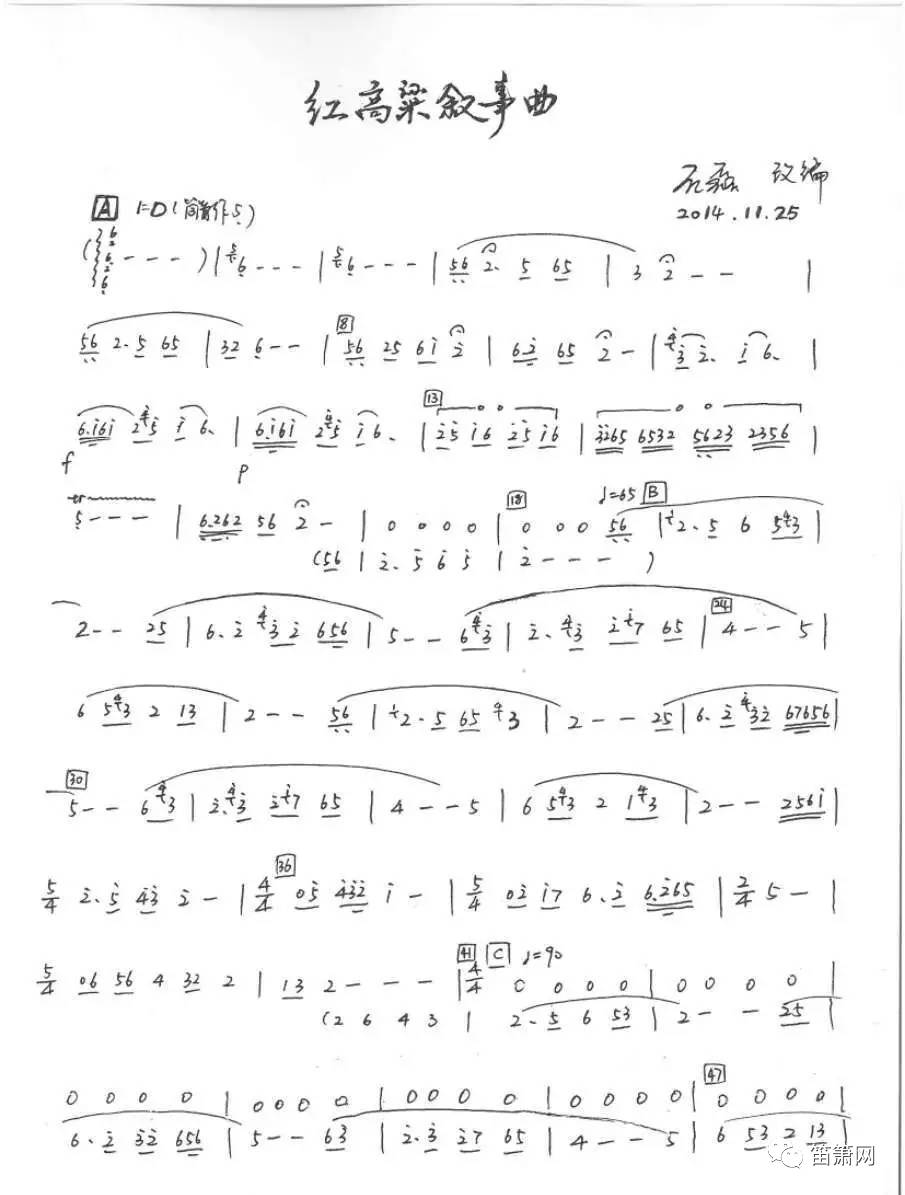 红高粱叙事曲
石磊 改编
2014.11.25
A 1=D(筒音作5)
( 6 2 6 2 6 - - - ) | 5 6 - - - | 5 6 - - - | 56 2. 5 65 | 3 2 - - |
56 2. 5 65 | 32 6 - - | 8 56 25 61 2 | 6.2 65 2 - | 4 3 2. 1 6. |
6.161 2 4 5 1 6. | 6.161 2 4 5 1 6. | 13 25 16 25 16 | 3265 6532 5623 2356 |
f p
tr 5 - - - | 6.262 56 2 - | 0 0 0 0 | 18 0 0 0 56 | ♩=65 B 1 2. 5 6 5 4 3 |
(56 | 2. 5 6 5 | 2 - - - )
2 - - 25 | 6. 2 4 3 2 656 | 5 - - 6 4 3 | 2. 4 3 2 1 7 65 | 24 4 - - 5 |
6 5 4 3 2 13 | 2 - - 56 | 1 2. 5 65 4 3 | 2 - - 25 | 6. 2 4 32 67656 |
30 5 - - 6 4 3 | 2. 4 3 2 1 7 65 | 4 - - 5 | 6 5 4 3 2 1 4 3 | 2 - - 2561 |
5/4 2. 5 43 2 - | 36 4/4 05 432 1 - | 5/4 02 17 6. 2 6.265 | 2/4 5 - |
5/4 06 56 4 32 2 | 13 2 - - - | 41 C ♩=90 4/4 0 0 0 0 | 0 0 0 0 |
(2 6 4 3 | 2. 5 6 53 | 2 - - 25 |
0 0 0 0 | 0 0 0 0 | 0 0 0 0 | 0 0 0 0 | 47 0 0 0 0 |
6. 2 32 656 | 5 - - 63 | 2. 3 27 65 | 4 - - 5 | 6 53 2 13 |
笛箫网